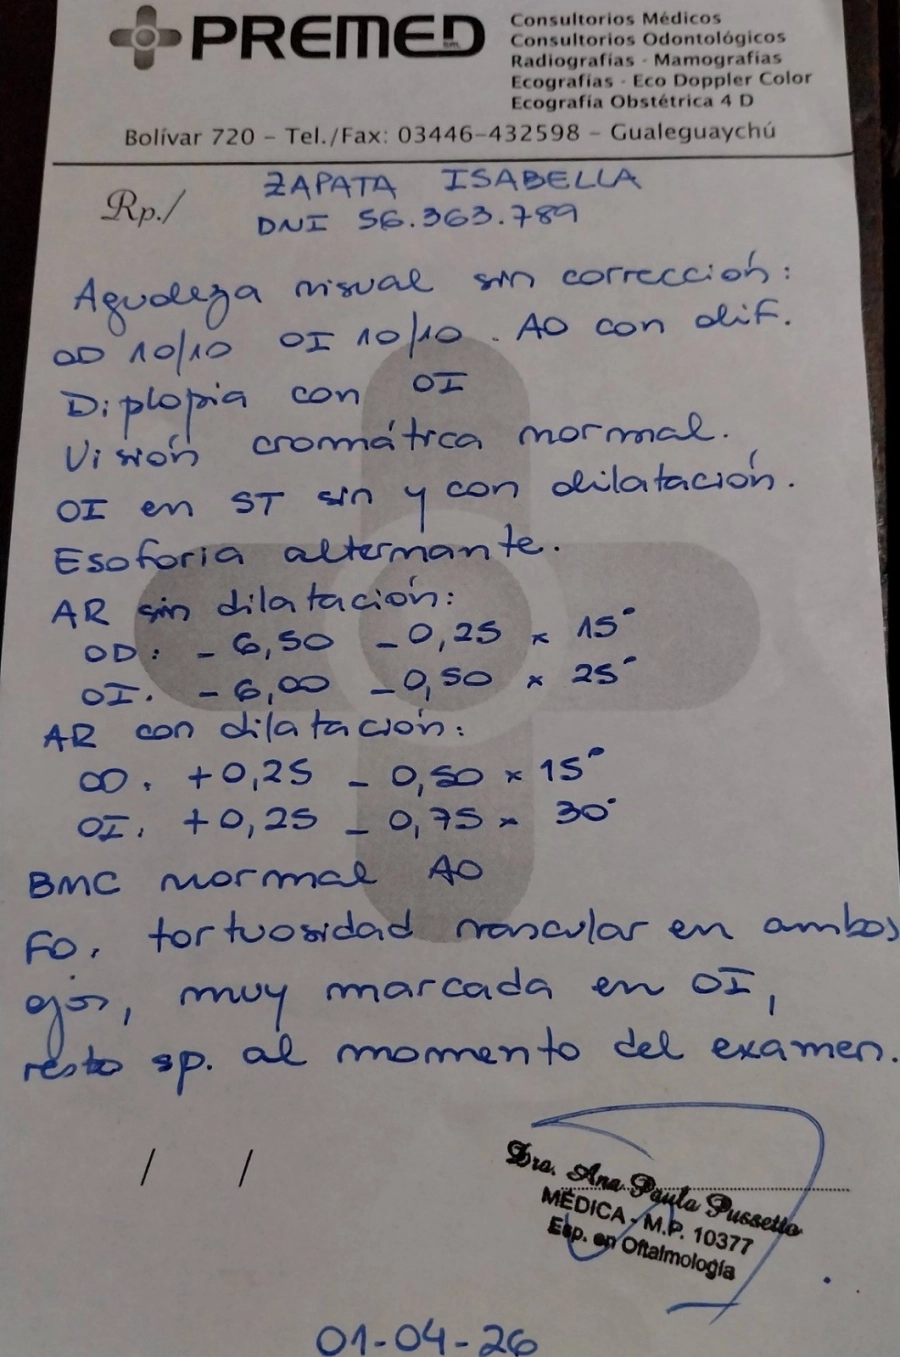 PREMED SRL
Consultorios Médicos
Consultorios Odontológicos
Radiografías - Mamografías
Ecografías - Eco Doppler Color
Ecografía Obstétrica 4 D
Bolívar 720 – Tel./Fax: 03446-432598 – Gualeguaychú
Rp./
ZAPATA ISABELLA
DNI 56.363.789
Agudeza visual sin corrección:
OD 10/10 OI 10/10. AO con dif.
Diplopia con OI
Visión cromática normal.
OI en ST sin y con dilatación.
Esoforia alternante.
AR sin dilatación:
OD: - 6,50 - 0,25 x 15°
OI. - 6,00 - 0,50 x 25°
AR con dilatación:
OD. +0,25 - 0,50 x 15°
OI. +0,25 - 0,75 x 30°
BMC normal AO
FO. tortuosidad vascular en ambos
ojos, muy marcada en OI,
resto sp. al momento del examen.
/ /
Dra. Ana Paula Pussetto
MÉDICA - M.P. 10377
Esp. en Oftalmología
01-04-26